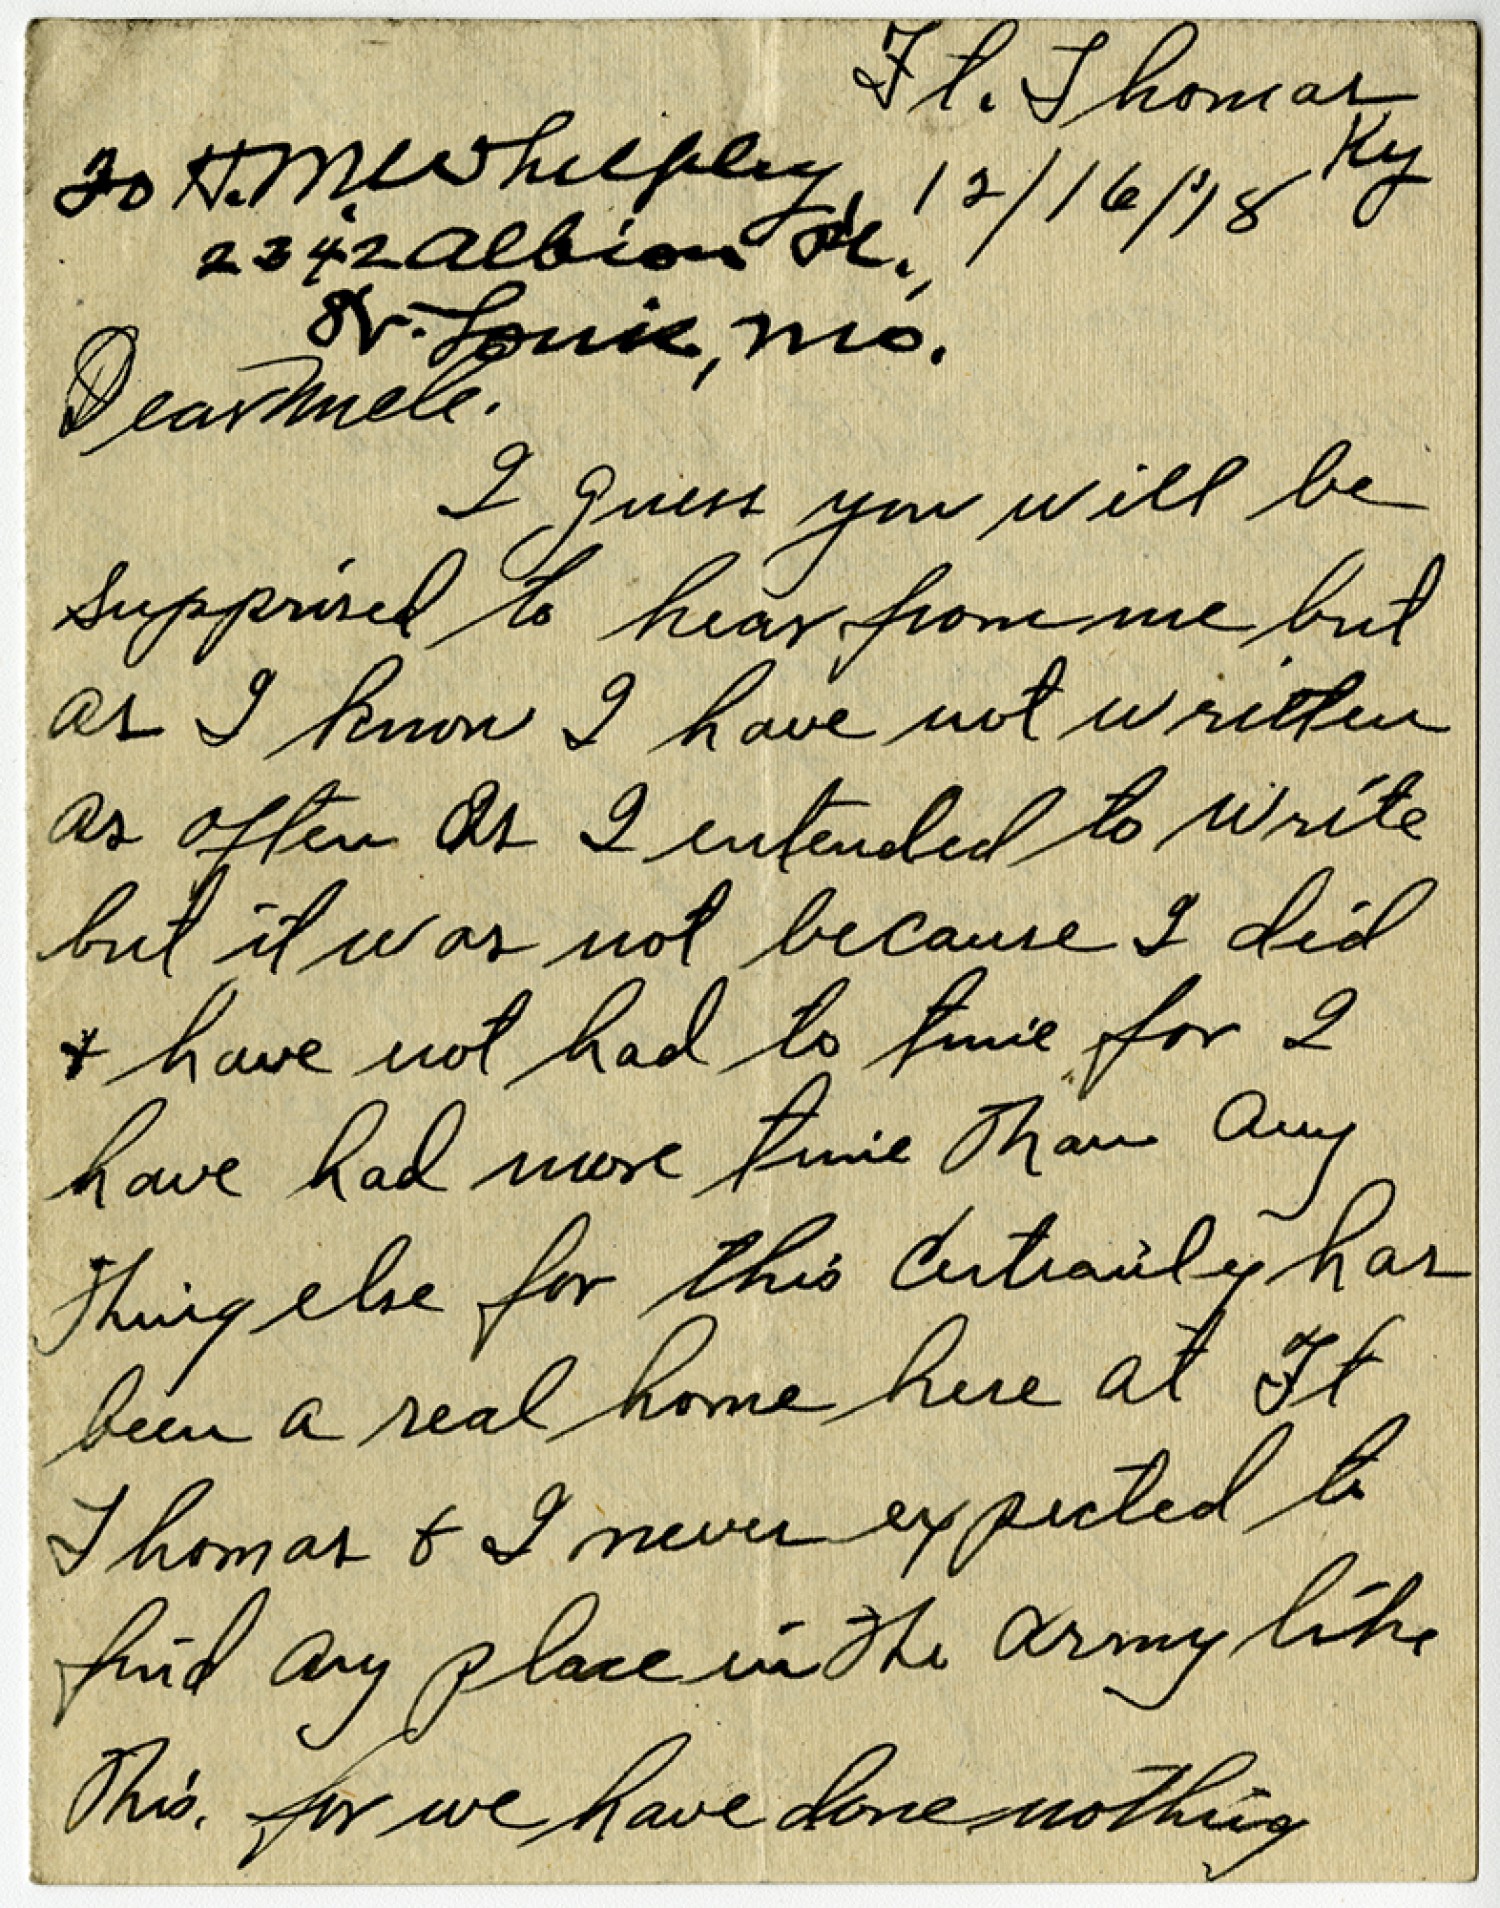 Ft. Thomas
Ky
12/16/'18
To H.M. Whelpley,
2342 Albion Pl.,
St. Louis, Mo.
Dear Uncle.
I guess you will be
supprised to hear from me but
as I know I have not written
as often as I intended to write
but it was not because I did
+ have not had to time for I
have had more time than any
thing else for this certrainly has
been a real home here at Ft
Thomas + I never expected to
find any place in the army like
this. for we have done nothing